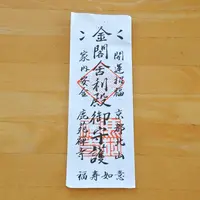 開運招福 京都北山
金閣舎利殿御守護
家内安全 鹿苑禅寺
如意
寿福